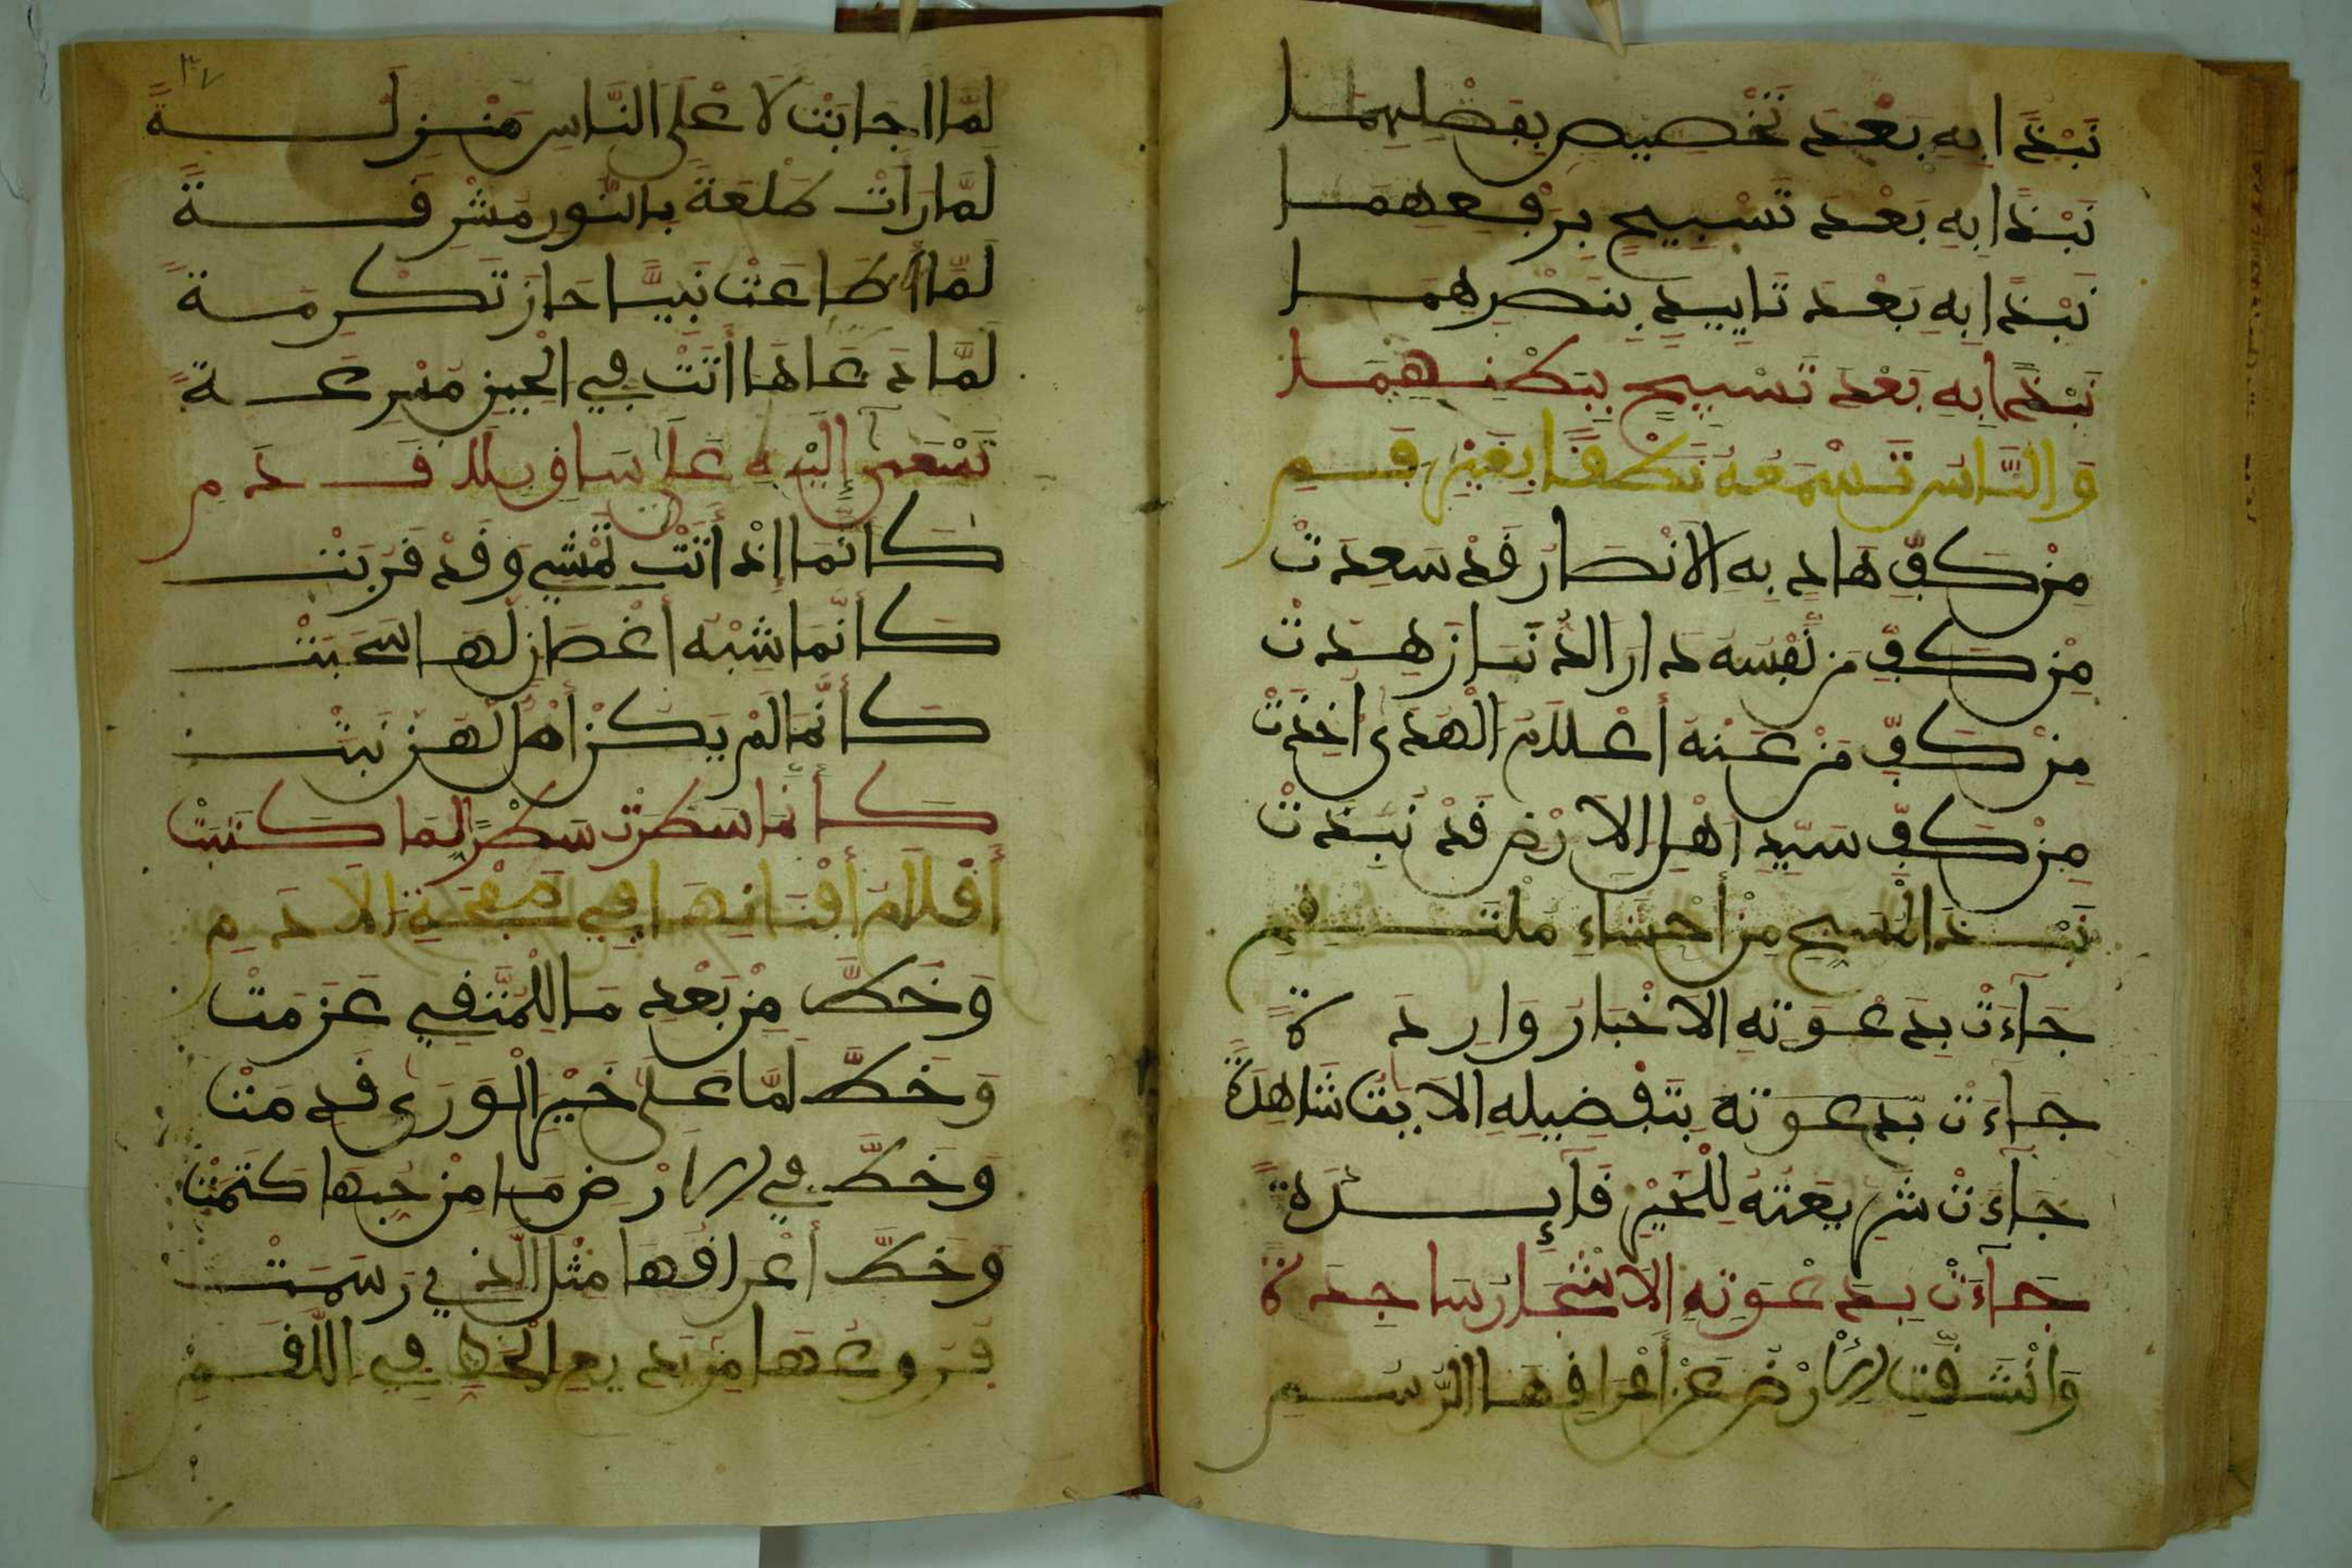 نَبْذًا بِهِ بَعْدَ تَخْصِيصٍ بِفَضْلِهِمَا
نَبْذًا بِهِ بَعْدَ تَسْبِيحٍ بِرَفْعِهِمَا
نَبْذًا بِهِ بَعْدَ تَايِيدٍ بِنَصْرِهِمَا
نَبْذًا بِهِ بَعْدَ تَسْبِيحٍ بِبَطْنِهِمَا
وَالنَّاسُ تَسْمَعُهُ نُطْقًا بِغَيْرِ فَمِ
مِنْ كَفِّ هَادٍ بِهِ الَانْصَارُ قَدْ سَعِدَتْ
مِنْ كَفِّ مَن نَفْسُهُ دَارَ الدُّنَا زَهِدَتْ
مِنْ كَفِّ مَنْ عَنْهُ أَعْلَامُ الْهُدَى أُخِذَتْ
مِنْ كَفِّ سَيِّدِ أَهْلِ الَارْضِ قَدْ نُبِذَتْ
نَبْذَ الْمُسَبِّحِ مِنْ أَحْشَاءِ مُلْتَقِمِ
جَآءَتْ بِدَعْوَتِهِ الَاخْبَارُ وَارِدَةً
جَآءَتْ بِدَعْوَتِهِ بِتَفْضِيلِهِ الَايَاتُ شَاهِدَةً
جَآءَتْ شَرِيعَتُهُ لِلْخَيْرِ قَآئِدَةً
جَآءَتْ بِدَعْوَتِهِ الَاشْجَارُ سَاجِدَةً
وَانْشَقَّتِ الَارْضُ عَنْ أَعْرَاقِهَا الرُّسُمِ
٣٧
لَمَّا اجَابَتْ لَاعْلَى النَّاسِ مَنْزِلَةً
لَمَّا رَأَتْ طَلْعَةً بِالنُّورِ مُشْرِقَةً
لَمَّا أَطَاعَتْ نَبِيًّا حَازَ تَكْرِمَةً
لَمَّا دَعَاهَا أَتَتْ فِي الْحِينِ مُسْرِعَةً
تَسْعَى إِلَيْهِ عَلَى سَاقٍ بِلَا قَدَمِ
كَأَنَّمَا إِذْ أَتَتْ تَمْشِي وَقَدْ قَرُبَتْ
كَأَنَّمَا شِبْهُ أَغْصَانٍ لَهَا سَحَبَتْ
كَأَنَّمَا لَمْ يَكُنْ أَصْلٌ لَهُنَّ نَبَتْ
كَأَنَّمَا سَطَرَتْ سَطْرًا لِمَا كَتَبَتْ
أَقْلَامُ أَفْنَانِهَا فِي صَفْحَةِ الَادَمِ
وَخَطَّ مِنْ بَعْدِ مَا لِلْمُتَّقِي عَزَمَتْ
وَخَطَّ لَمَّا عَلَى خَيْرِ الْوَرَى قَدِمَتْ
وَخَطَّ فِي الَارْضِ مَا مِنْ حُبِّهَا كَتَمَتْ
وَخَطَّ أَعْرَاقُهَا مِثْلَ الَّذِي رَسَمَتْ
فُرُوعُهَا مِنْ بَدِيعِ الْخَطِّ فِي اللَّقَمِ